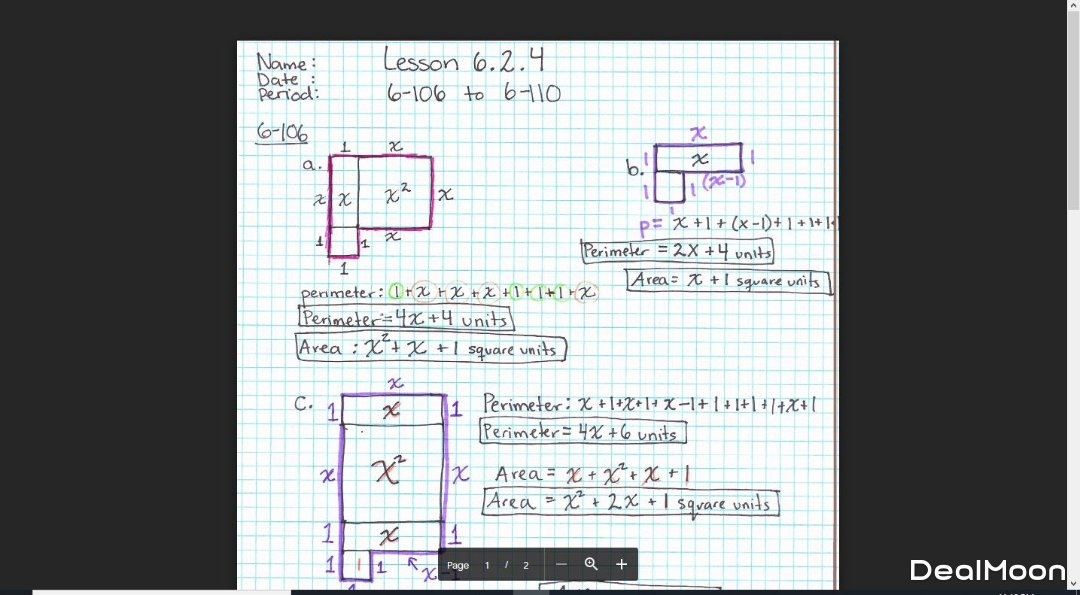 Name: Lesson 6.2.4
Date :
Period: 6-106 to 6-110
6-106
a.
1 x
x x x² x
1 1 x
1
perimeter: 1+x+x+x+1+1+1+x
Perimeter=4x+4 units
Area : x²+ x +1 square units
b.
x
1 x 1
1 1 (x-1)
1
p= x+1+(x-1)+1+1+1+
Perimeter = 2x+4 units
Area= x+1 square units
c.
x
1 x 1
x x² x
1 x 1
1 1 1 x-1
Perimeter: x+1+x+1+x-1+1+1+1+1+x+1
Perimeter= 4x+6 units
Area = x + x² + x + 1
Area = x² + 2x + 1 square units
Page 1 / 2 — +
DealMoon